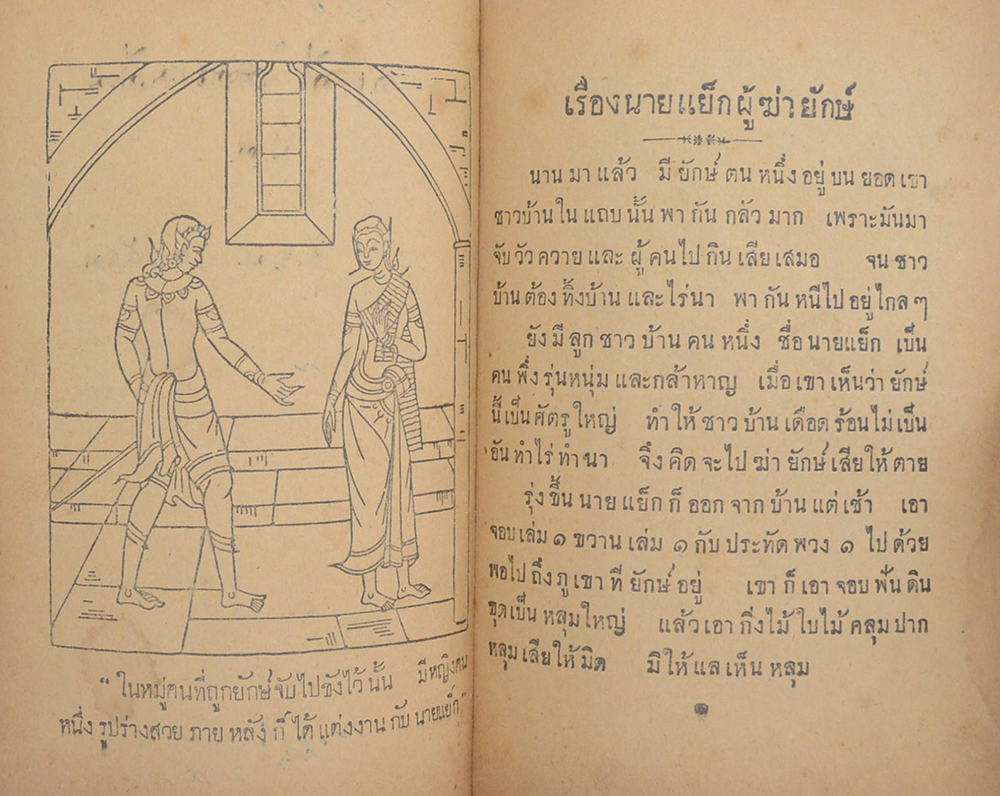 “ ในหมู่คนที่ถูกยักษ์จับไปขังไว้นั้น มีหญิงคน
หนึ่ง รูปร่างสวย ภาย หลัง ก็ ได้ แต่งงาน กับ นายแย็ก”
เรื่องนายแย็กผู้ฆ่ายักษ์
นาน มา แล้ว มี ยักษ์ ตน หนึ่ง อยู่ บน ยอด เขา
ชาวบ้าน ใน แถบ นั้น พา กัน กลัว มาก เพราะมันมา
จับวัว ควาย และ ผู้ คนไป กิน เสีย เสมอ จน ชาว
บ้าน ต้อง ทิ้งบ้าน และ ไร่ นา พา กัน หนีไป อยู่ ไกล ๆ
ยัง มี ลูก ชาว บ้าน คน หนึ่ง ชื่อ นายแย็ก เป็น
คน พึ่ง รุ่นหนุ่ม และกล้าหาญ เมื่อ เขา เห็นว่า ยักษ์
นี้เป็น ศัตรู ใหญ่ ทำ ให้ ชาว บ้าน เดือด ร้อนไม่ เป็น
อัน ทำไร่ ทำนา จึง คิด จะ ไป ฆ่า ยักษ์ เสีย ให้ ตาย
รุ่ง ขึ้น นาย แย็ก ก็ ออก จาก บ้าน แต่ เช้า เอา
จอบ เล่ม ๑ ขวาน เล่ม ๑ กับ ประทัด พวง ๑ ไป ด้วย
พอไป ถึง ภู เขา ที่ ยักษ์ อยู่ เขา ก็ เอา จอบ ฟัน ดิน
ขุดเป็น หลุมใหญ่ แล้ว เอา กิ่งไม้ ใบไม้ คลุม ปาก
หลุม เสีย ให้ มิด มิ ให้ แล เห็น หลุม
๑